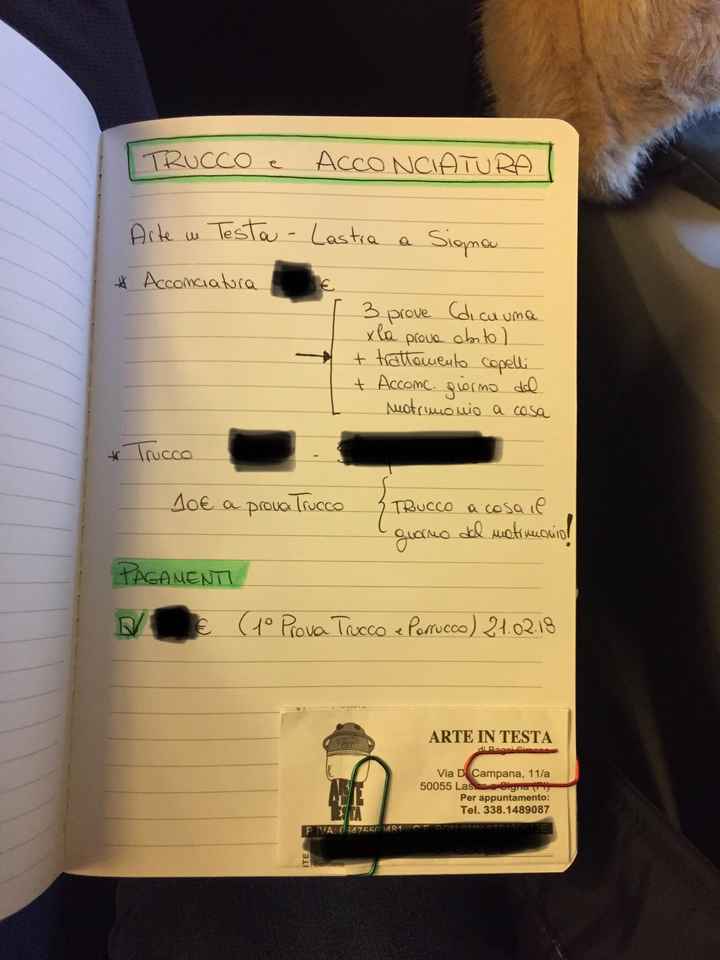 TRUCCO e ACCONCIATURA
Arte in Testa - Lastra a Signa
* Acconciatura €
3 prove (di cui una
x la prova abito)
→ + trattamento capelli
+ Acconc. giorno del
matrimonio a casa
* Trucco -
10€ a prova Trucco
TRUCCO a casa il
giorno del matrimonio!
PAGAMENTI
€ (1° Prova Trucco e Parrucco) 21.02.18
ARTE IN TESTA
Via Di Campana, 11/a
50055 Lastra a Signa (FI)
Per appuntamento:
Tel. 338.1489087
P. IVA
ARTE
IN
TESTA